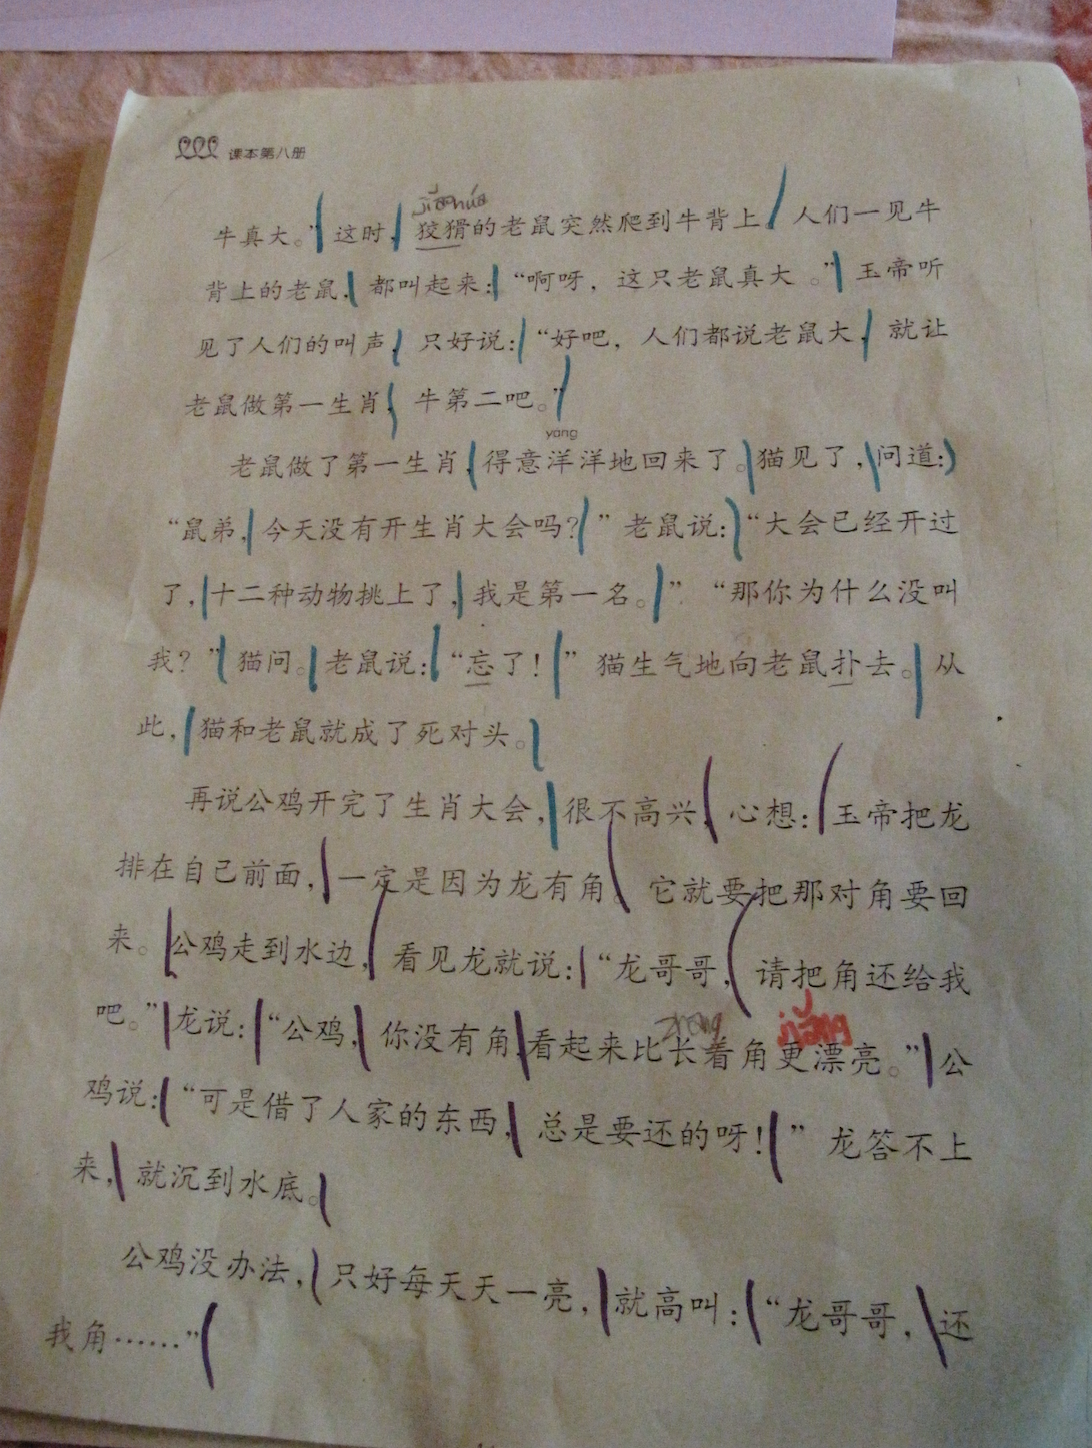 课本第八册
jiǎohuá
牛真大。”这时，狡猾的老鼠突然爬到牛背上。人们一见牛
背上的老鼠，都叫起来：“啊呀，这只老鼠真大。”玉帝听
见了人们的叫声，只好说：“好吧，人们都说老鼠大，就让
老鼠做第一生肖，牛第二吧。”
yang
老鼠做了第一生肖，得意洋洋地回来了。猫见了，问道：
“鼠弟，今天没有开生肖大会吗？”老鼠说：“大会已经开过
了，十二种动物挑上了，我是第一名。”“那你为什么没叫
我？”猫问。老鼠说：“忘了！”猫生气地向老鼠扑去。从
此，猫和老鼠就成了死对头。
再说公鸡开完了生肖大会，很不高兴，心想：玉帝把龙
排在自己前面，一定是因为龙有角。它就要把那对角要回
来。公鸡走到水边，看见龙就说：“龙哥哥，请把角还给我
吧。”龙说：“公鸡，你没有角，看起来比长着角更漂亮。”公
鸡说：“可是借了人家的东西，总是要还的呀！”龙答不上
来，就沉到水底。
公鸡没办法，只好每天天一亮，就高叫：“龙哥哥，还
我角……”